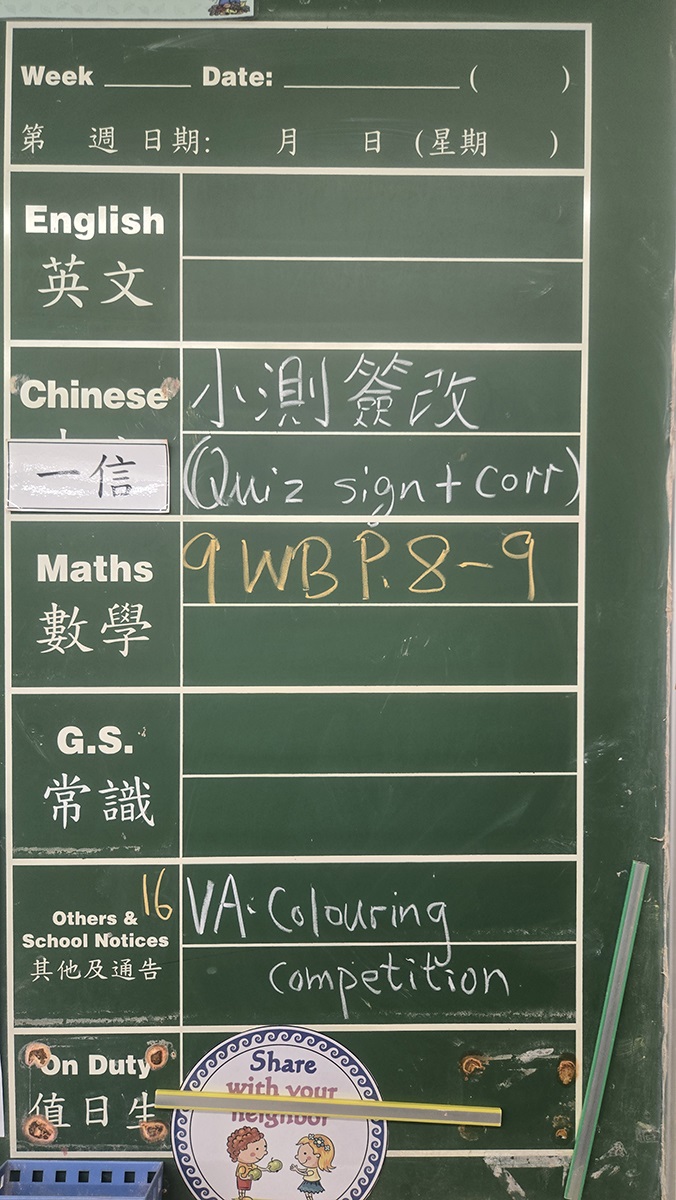 Week ______ Date: ____________ (      )
第 週 日期: 月 日 (星期 )
English
英文
Chinese
小測簽改
一信
(Quiz sign + corr)
Maths
數學
9 WB P. 8-9
G.S.
常識
Others &
School Notices
其他及通告
16
VA: Colouring
competition
On Duty
值日生
Share
with your
neighbor